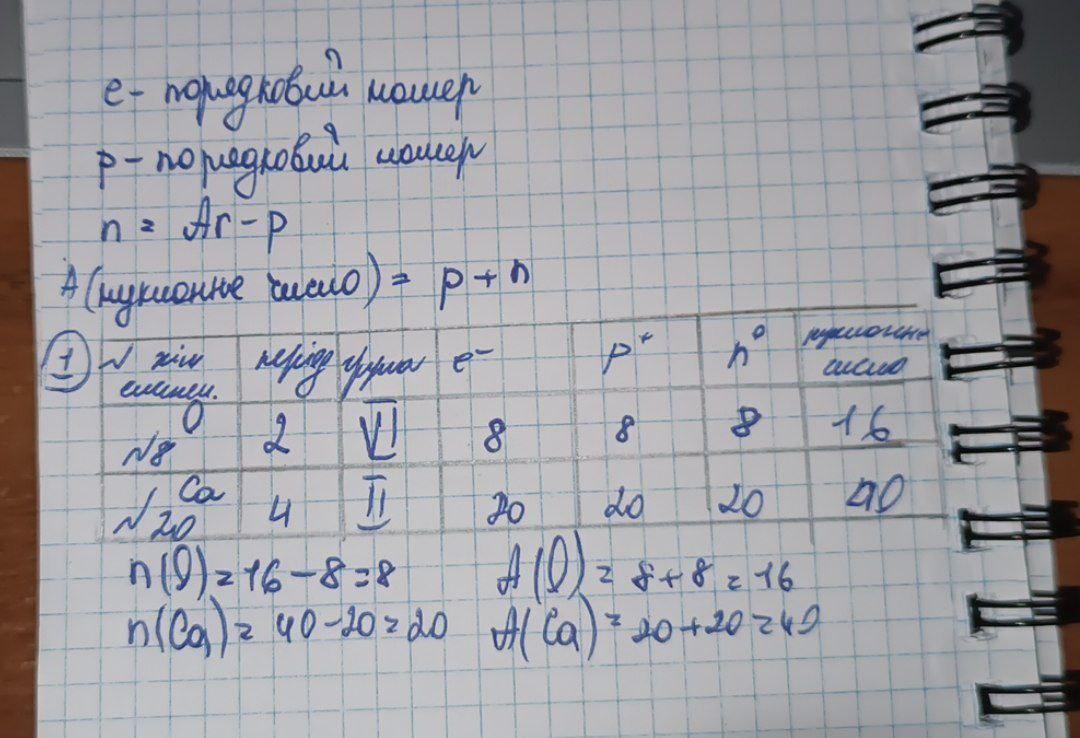 e - порядковий номер
p - порядковий номер
n = Ar - p
A (нуклонне число) = p + n
1 N хім елемен. період група e⁻ p⁺ n⁰ нуклонне число
O N8 2 VI 8 8 8 16
Ca N20 4 II 20 20 20 40
n(O) = 16 - 8 = 8 A(O) = 8 + 8 = 16
n(Ca) = 40 - 20 = 20 A(Ca) = 20 + 20 = 40